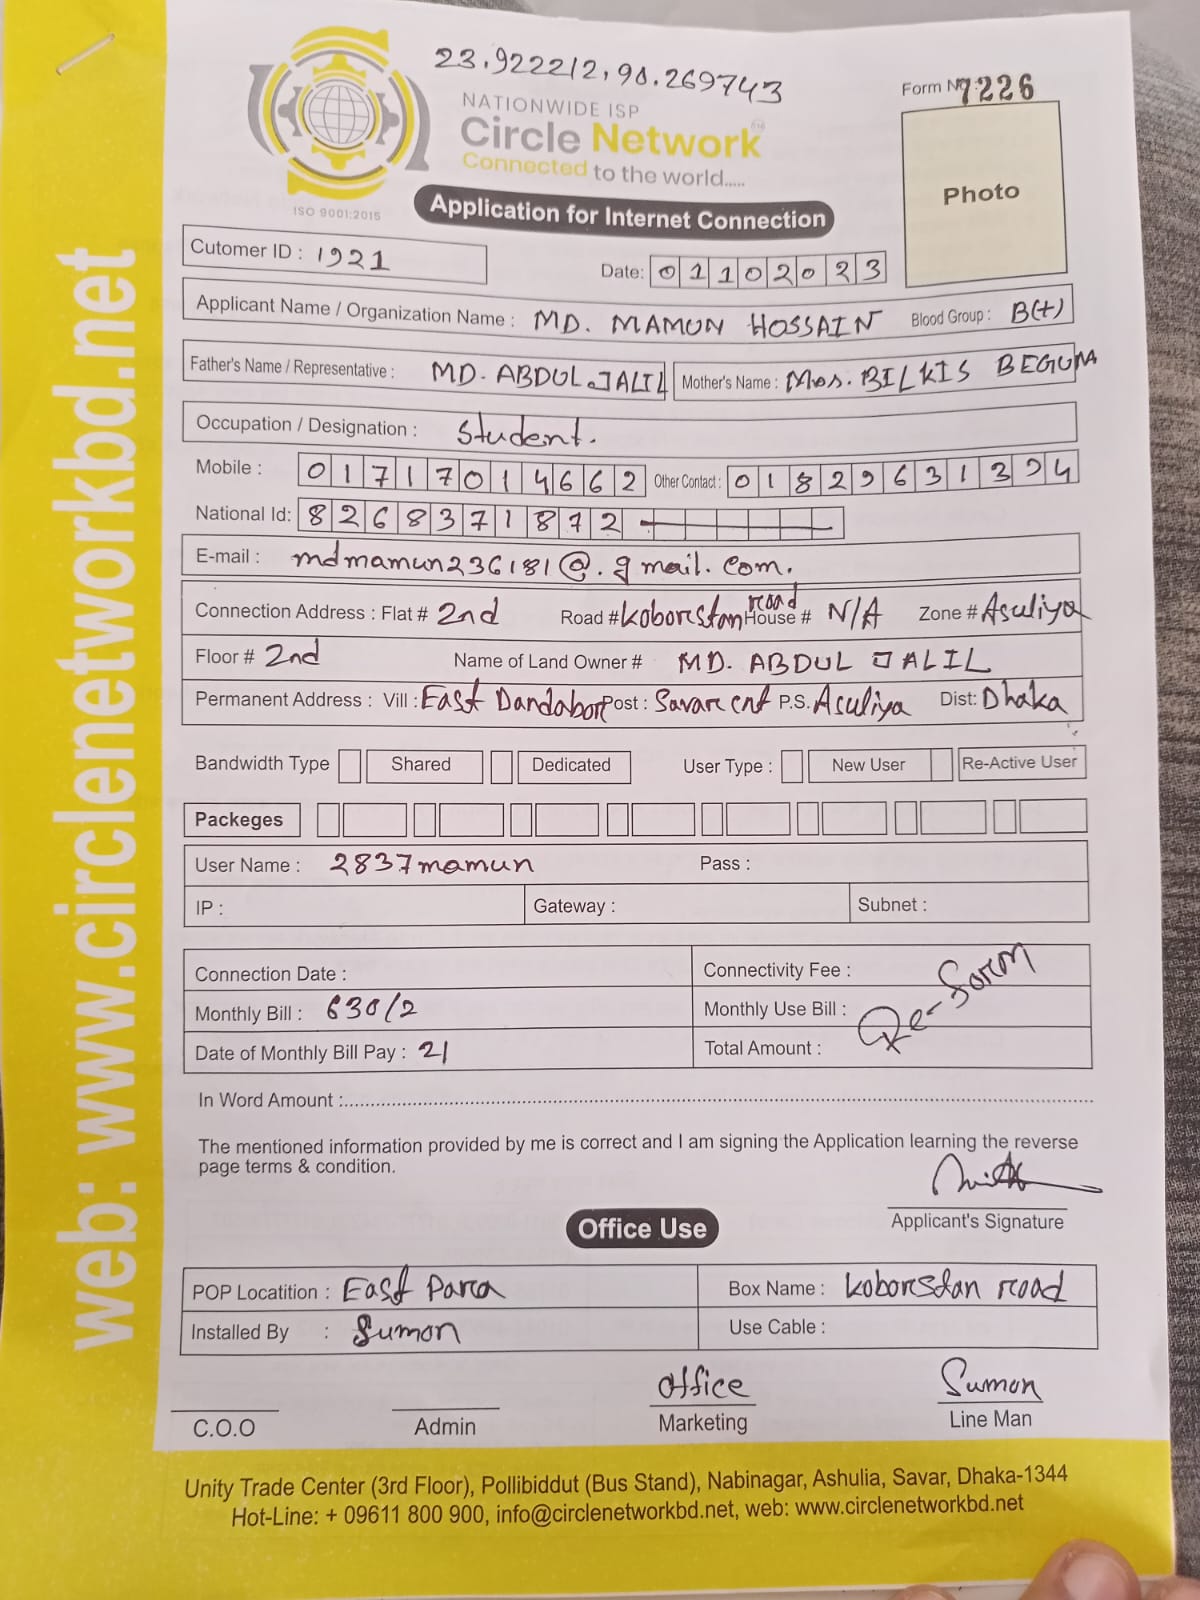 23.922212, 90.269743
NATIONWIDE ISP
Circle Network
Connected to the world.....
ISO 9001:2015
Form No: 7226
Photo
Application for Internet Connection
Cutomer ID : 1921
Date: 01102023
Applicant Name / Organization Name : MD. MAMUN HOSSAIN Blood Group : B(+)
Father's Name / Representative : MD. ABDUL JALIL Mother's Name : Mos. BILKIS BEGUM
Occupation / Designation : Student.
Mobile : 01717014662 Other Contact : 01829631394
National Id: 8268371872
E-mail : mdmamun236181@.gmail.com.
Connection Address : Flat # 2nd Road # koborstan road House # N/A Zone # Asuliya
Floor # 2nd Name of Land Owner # MD. ABDUL JALIL
Permanent Address : Vill : East Dandabor Post : Savar cnt P.S. Asuliya Dist: Dhaka
Bandwidth Type Shared Dedicated User Type : New User Re-Active User
Packeges
User Name : 2837mamun Pass :
IP : Gateway : Subnet :
Connection Date : Connectivity Fee :
Monthly Bill : 630/2 Monthly Use Bill :
Date of Monthly Bill Pay : 21 Total Amount :
Re-
In Word Amount :
The mentioned information provided by me is correct and I am signing the Application learning the reverse
page terms & condition.
Applicant's Signature
Office Use
POP Locatition : East Para Box Name : koborstan road
Installed By : Sumon Use Cable :
Office Sumon
C.O.O Admin Marketing Line Man
Unity Trade Center (3rd Floor), Pollibiddut (Bus Stand), Nabinagar, Ashulia, Savar, Dhaka-1344
Hot-Line: + 09611 800 900, info@circlenetworkbd.net, web: www.circlenetworkbd.net
web: www.circlenetworkbd.net